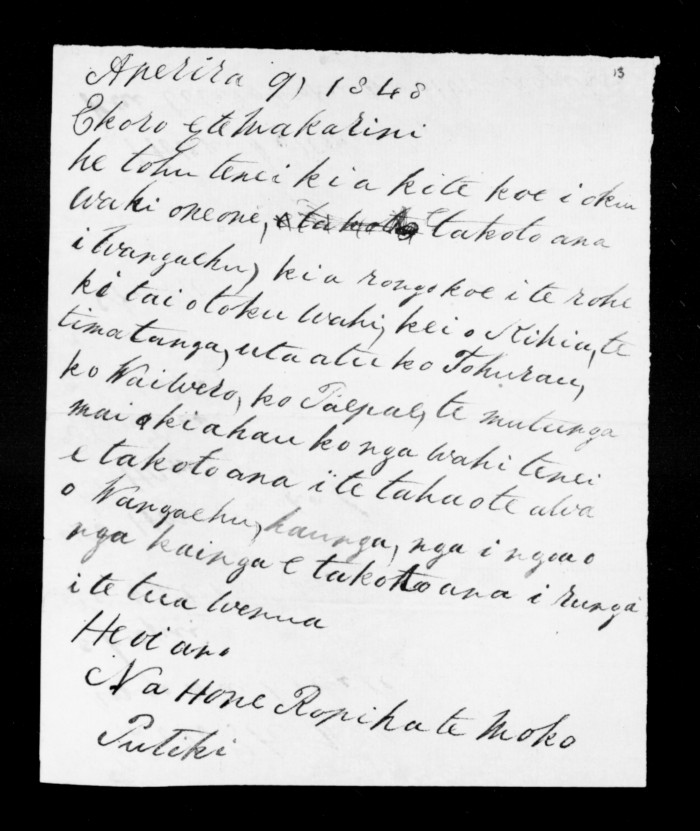 13
Aperira 9, 1848
Ekoro e te Makarini
he tohu tenei kia kite koe i oku
waki oneone, e takoto ana
i Wangaehu, kia rongo koe i te rohe
ki tai o toku wahi, kei o Kihia, te
timatanga, uta atu ko Tohurau,
ko Waiwero, ko Paepae, te mutunga
mai ki ahau ko nga wahi tenei
e takoto ana i te taha o te awa
o Wangaehu, haunga, nga i ngaro
nga kainga e takoto ana i runga
i te tua wenua
Heoi ano
Na Hone Ropiha te Moko
Putiki